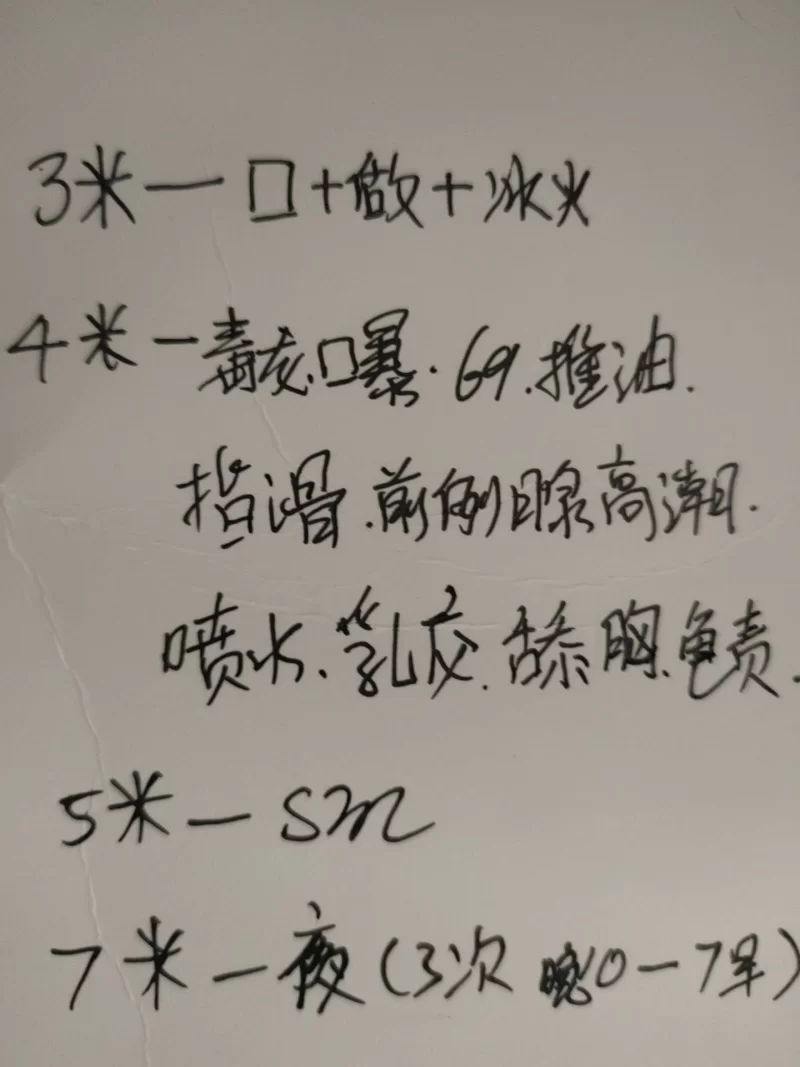 3米一口+做+冰火
4米一毒龙.口暴.69.推油.
指滑.前例腺高潮.
喷水.乳交.舔胸.
5米一sm
7米一夜(3次 晚10一7早)